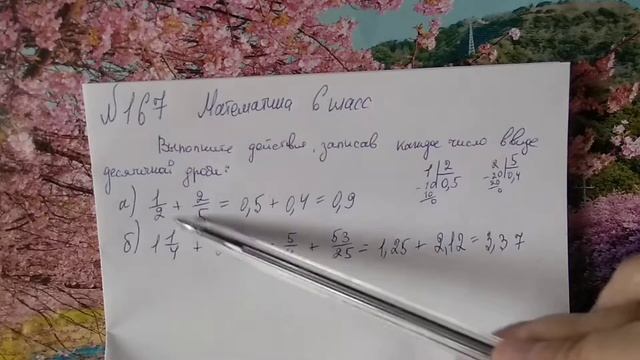 №167 Математика 6 класс
Выполните действия, записав каждое число в виде
десятичной дроби:
а) 1/2 + 2/5 = 0,5 + 0,4 = 0,9
б) 1 1/4 + = 5/ + 53/25 = 1,25 + 2,12 = 3,37
1 | 2
-10 | 0,5
10
0
2 | 5
-20 | 0,4
20
0